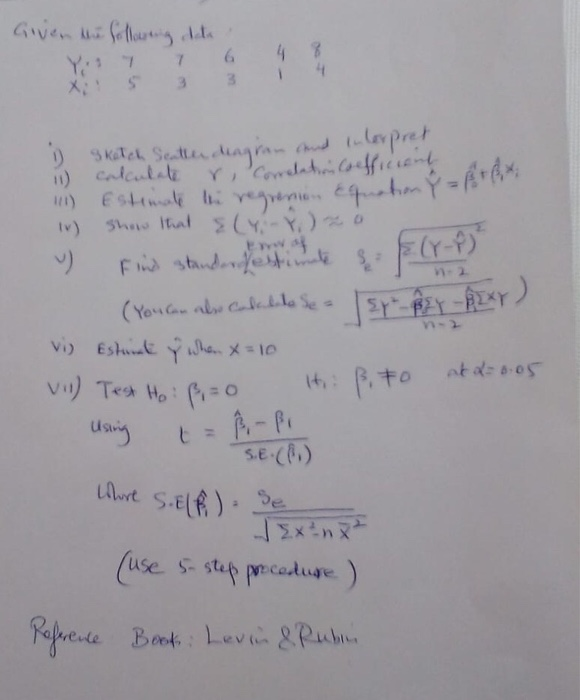 Given the following data :
Yi : 7 7 6 4 8
Xi : 5 3 3 1 4
i) Sketch Scatter diagram and interpret
ii) calculate r, Correlation Coefficient
iii) Estimate the regression Equation Ŷ = β̂₀ + β̂₁xᵢ
iv) Show that Σ(Yᵢ - Ŷᵢ) ≈ 0
v) Find standard error of estimate Se = √(Σ(Y-Ŷ)² / n-2)
(You can also calculate Se = √(ΣY² - β̂₀ΣY - β̂₁ΣXY / n-2))
vi) Estimate Ŷ when X = 10
vii) Test H₀ : β₁ = 0 H₁ : β₁ ≠ 0 at α = 0.05
Using t = β̂₁ - β₁ / S.E.(β̂₁)
Where S.E(β̂₁) = Se / √(Σx² - n x̄²)
(Use 5-step procedure)
Reference Book : Levin & Rubin